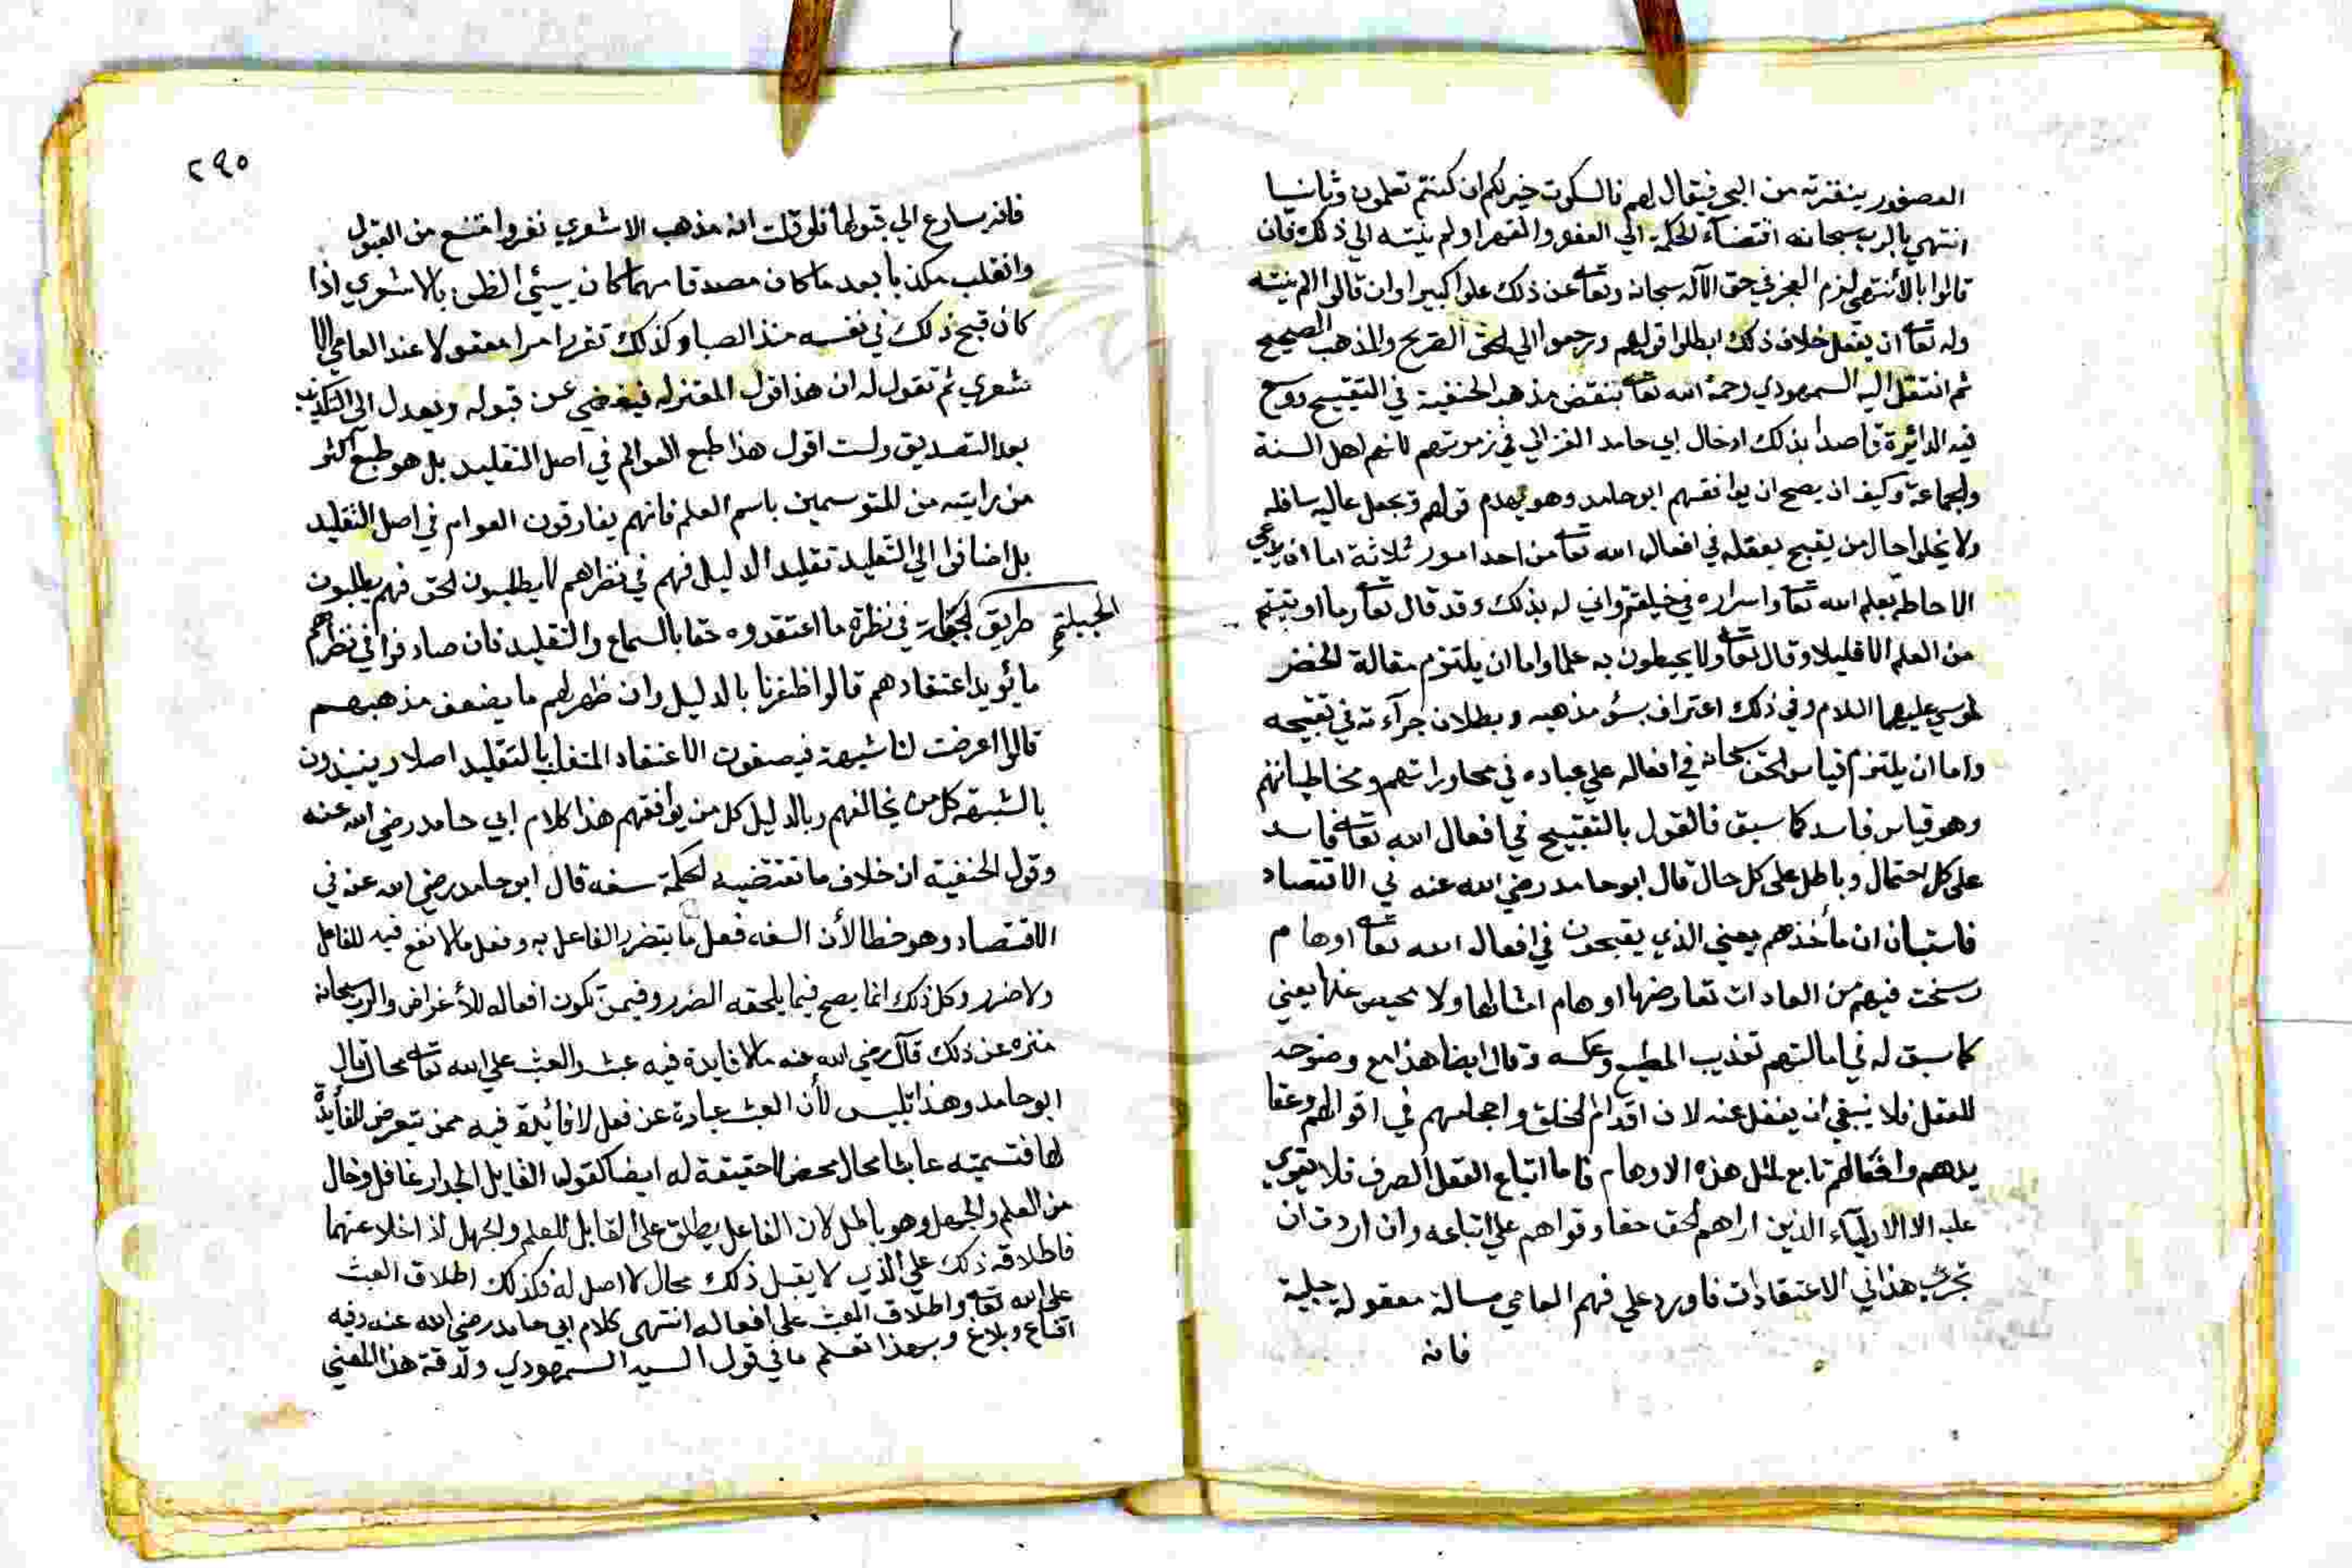 العصفور بنقرته من البحر فيقال لهم فالسكوت خير لكم ان كنتم تعلمون وثانيا
انتهي بالرب سبحانه اقتضاء الحكمة الي العفو والقهر او لم ينته الي ذلك فان
قالوا بالأنتهي لزم العجز في حق الآله سبحانه وتعا عن ذلك علوا كبيرا وان قالوا لم ينته
وله تعا ان يفعل خلاف ذلك ابطلوا قولهم ورجعوا الي الحق الصريح والمذهب الصحيح
ثم انتقل اليه السمهودي رحمة الله تعا بنقض مذهب الحنفية في التقبيح ووسع
فيه الدائرة قاصدا بذلك ادخال ابي حامد الغزالي في زمرتهم لانهم اهل السنة
والجماعة وكيف ان يصح ان يوافقهم ابو حامد وهو يهدم قولهم ويجعل عاليه سافله
ولا يخلوا حال من يقبح بعقله في افعال الله تعا من احد امور ثلاثة اما ان يدعي
الاحاطة بعلم الله تعا واسراره في خليقته واني له بذلك وقد قال تعا وما اوتيتم
من العلم الا قليلا وقال تعا ولا يحيطون به علما واما ان يلتزم مقالة الخضر
لموسي عليهما السلام وفي ذلك اعتراف بسؤ مذهبه وبطلان جرآءته في تقبيحه
واما ان يلتزم قياس الحق سبحانه في افعاله علي عباده في محاوراتهم ومخاطباتهم
وهو قياس فاسد كما سبق فالقول بالتقبيح في افعال الله تعا فاسد
علي كل احتمال وباطل علي كل حال قال ابو حامد رضي الله عنه في الاقتصاد
فاستبان ان مأخذهم يعني الذي يقبحون في افعال الله تعا اوهام
رسخت فيهم من العادات تعارضها اوهام امثالها ولا محيص عنها يعني
كما سبق له في امالتهم تعذيب المطيع وعكسه وقال ايضا هذا مع وضوحه
للعقل فلا ينبغي ان يغفل عنه لان اقدام الخلق واحجامهم في اقوالهم وعقا
يدهم وافعالهم تابع لمثل هذه الاوهام فاما اتباع العقل الصرف فلا يقوي
عليه الا الاوليآء الذين اراهم الحق حقا وقواهم علي اتباعه وان اردت ان
تجرب هذا في الاعتقادات فاورد علي فهم العامي مسالة معقولة جلية
فانه
٢٩٥
فانه يسارع الي قبولها فلو قلت انه مذهب الاشعري نفر وامتنع من القبول
وانقلب مكذبا بعد ما كان مصدقا مهما كان سيئ الظن بالاشعري اذا
كان قبح ذلك في نفسه منذ الصبا وكذلك تقرر امرا معقولا عند العامي الا
شعري ثم تقول له ان هذا قول المعتزله فيغضي عن قبوله ويعدل الي التكذيب
بعد التصديق ولست اقول هذا طبع العوام في اصل التقليد بل هو طبع اكثر
من رايته من المتوسمين باسم العلم فانهم يفارقون العوام في اصل التقليد
بل اضافوا الي التقليد تقليد الدليل فهم في نظرهم لا يطلبون الحق فهم يطلبون
طريق في نظره ما اعتقدوه حقا بالسماع والتقليد فان صادفوا في نظرهم
ما يؤيد اعتقادهم قالوا ظفرنا بالدليل وان ظهر لهم ما يضعف مذهبهم
قالوا عرضت لنا شبهة فيصفون الاعتقاد المتغلب بالتقليد اصلا وينبذون
بالشبهة كل من يخالفهم وبالدليل كل من يوافقهم هذا كلام ابي حامد رضي الله عنه
وقول الحنفية ان خلاف ما تقتضيه الحكمة سفه قال ابو حامد رضي الله عنه في
الاقتصاد وهو خطا لأن السفه فعل ما يتضرر الفاعل به وفعل ما لا نفع فيه للفاعل
ولا ضرر وكل ذلك انما يصح فيما يلحقه الضرر وفيمن تكون افعاله للأغراض والرب سبحانه
منزه عن ذلك قال رضي الله عنه ما لا فايدة فيه عبث والعبث علي الله تعا محال قال
ابو حامد وهذا تلبيس لأن العبث عبارة عن فعل لا فائدة فيه ممن يتعرض للفايدة
لها فتسميته عابثا محال محض لا حقيقة له ايضا كقول القايل الجدار غافل وخال
من العلم والجهل وهو باطل لان الغافل يطلق علي القابل للعلم والجهل اذ اخلا عنهما
فاطلاقه ذلك علي الذي لا يقبل ذلك محال لا اصل له وكذلك اطلاق العبث
علي الله تعا واطلاق العبث علي افعاله انتهي كلام ابي حامد رضي الله عنه وفيه
اقناع وبلاغ وبهذا تعلم ما في قول السيد السمهودي ولدقة هذا المعني